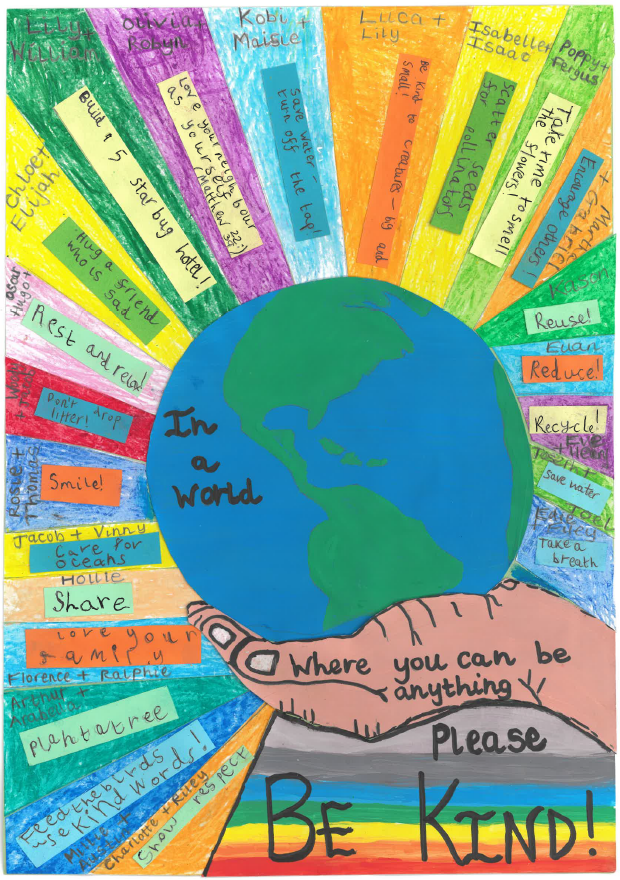 Lily +
William
Build a 5 star bug hotel!
Olivia +
Robyn
Love your neighbour
as yourself
Matthew 22:
Kobi +
Maisie
Save water -
turn off the tap!
Luca +
Lily
Be kind to creatures - big and
small!
Isabelle +
Isaac
Scatter seeds
for pollinators
Poppy +
Fergus
Take time to smell
the flowers!
+ Gabriel
Encourage others!
Chloe +
Elijah
Hug a friend
who is sad
Hugo +
Rest and relax!
Don't drop
litter!
Rosie +
Thomas
Smile!
Jacob + Vinny
Care for
oceans
Hollie
Share
Love your
family
Florence + Ralphie
Arthur +
Arabella
Plant a tree
Feed the birds
use Kind Words!
Charlotte + Riley
Show respect
Reuse!
Euan
Reduce!
Recycle!
save water
Take a
breath
In
a
world
Where you can be
anything
Please
BE KIND!